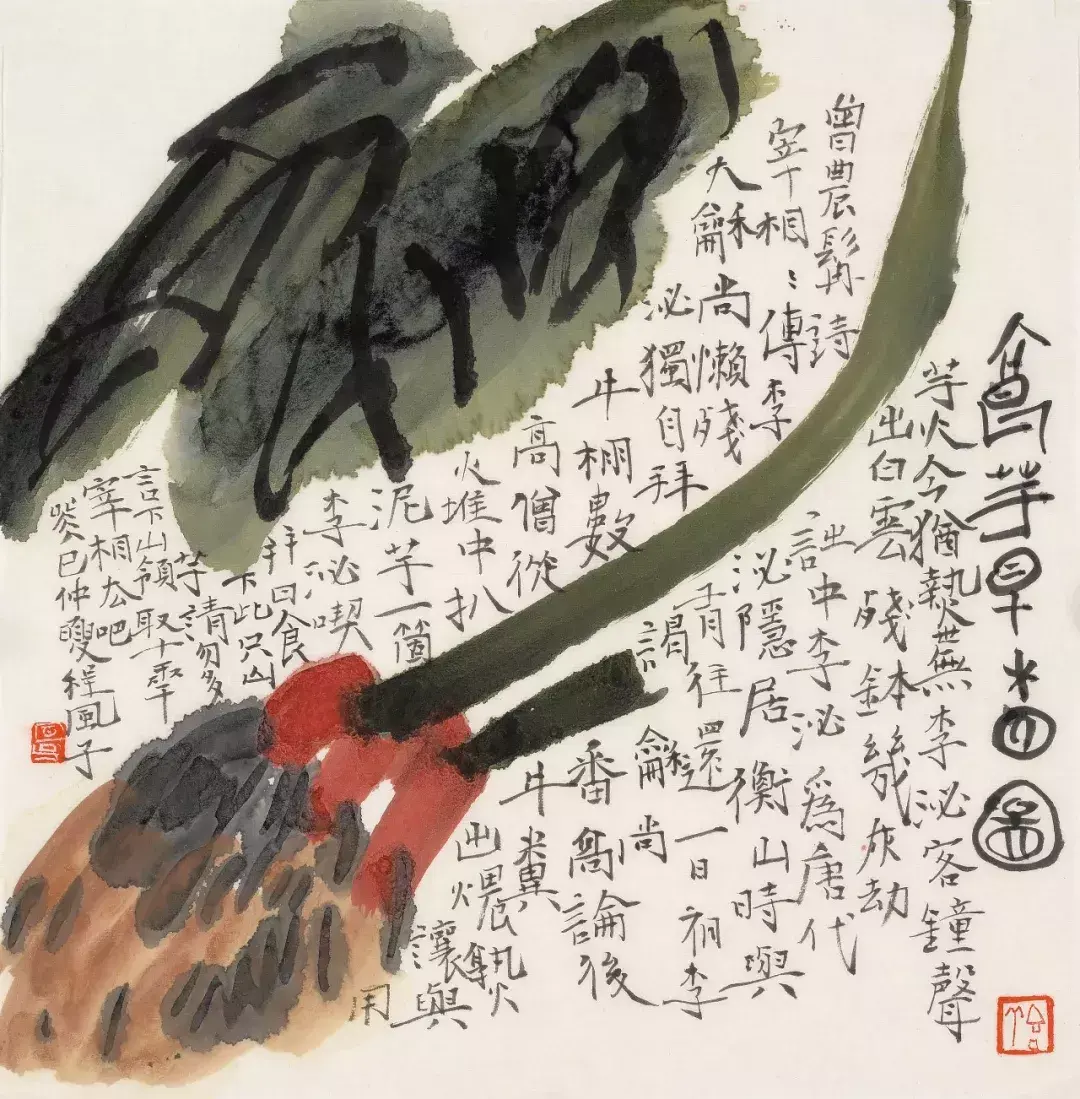 芋
圖
芋火今猶熱無李泌客鐘聲
出白雲殘鉢幾灰劫
曾農髯詩註中李泌爲唐代
宰相〻傳李泌隱居衡山時與
大龢尚懶殘肯往還一日初李
泌獨自拜謁龢尚
牛棚數番高論後
高僧從牛糞
火堆中扒出煨熟
泥芋一箇讓與
李泌喫用
拜曰食
下此只山
芋請勿多
言下山領取十
宰相去吧
癸巳仲夏程風子